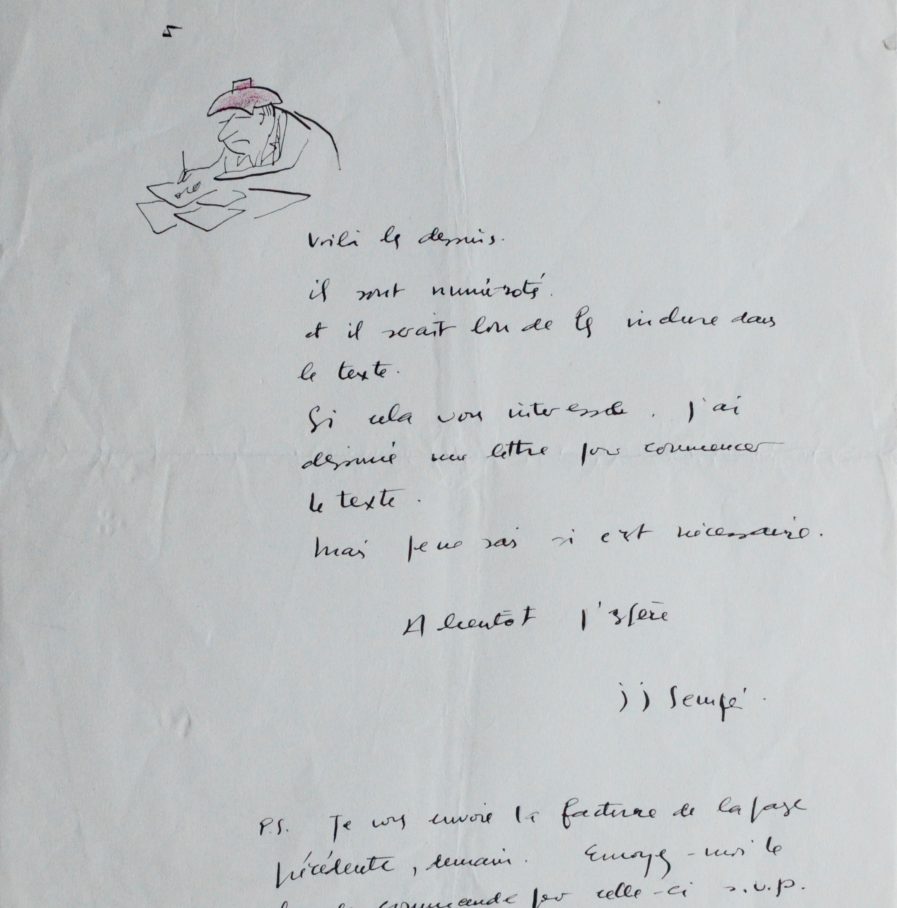 Voilà les dessins.
il sont numérotés.
et il serait bon de les inclure dans
le texte.
Si cela vous interesse. j'ai
dessiné une lettre pour commencer
le texte.
Mais je ne sais si c'est nécessaire.
A bientôt j'espère
jj Sempé.
P.S. Je vous envoie la facture de la page
précédente, demain. Envoyez-moi le
commande pour celle-ci s.v.p.